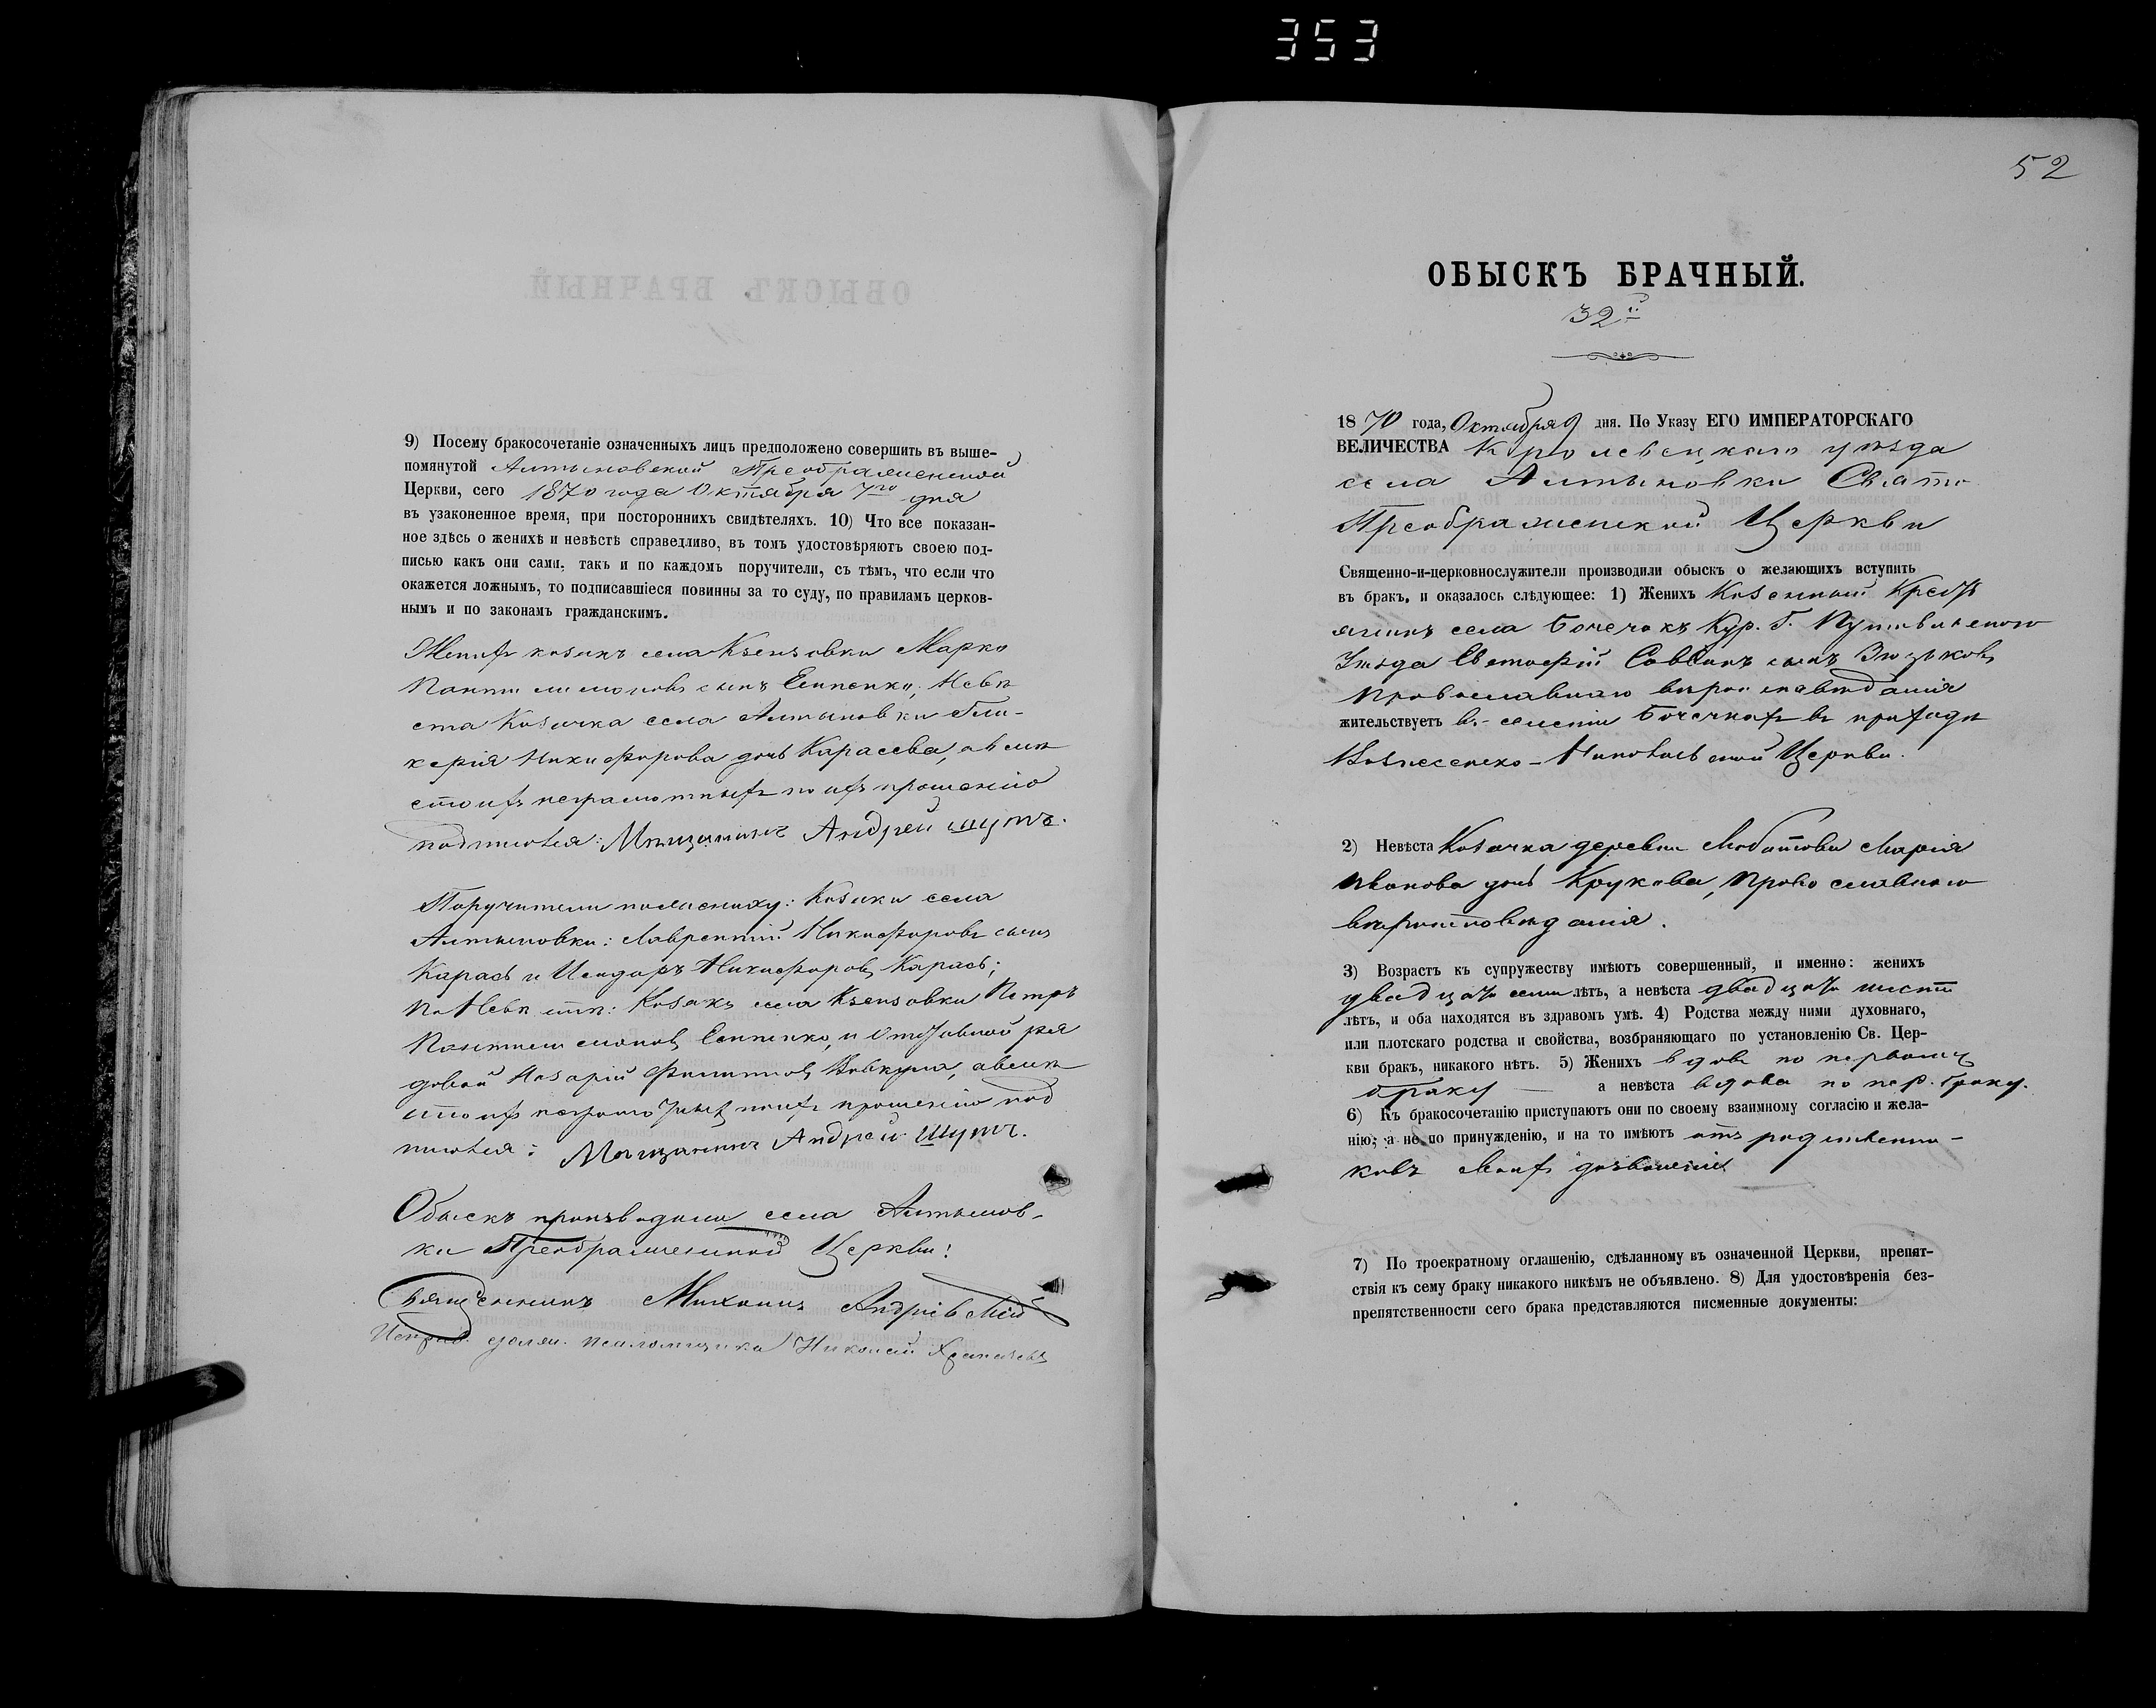 353
9) Посему бракосочетаніе означенныхъ лицъ предположено совершить въ выше-
помянутой Алтыновской Преображенской
Церкви, сего 1870 года Октября 7го дня
въ узаконенное время, при постороннихъ свидѣтеляхъ. 10) Что все показан-
ное здѣсь о женихѣ и невѣстѣ справедливо, въ томъ удостовѣряютъ своею под-
писью какъ они сами, такъ и по каждомъ поручители, съ тѣмъ, что если что
окажется ложнымъ, то подписавшіеся повинны за то суду, по правиламъ церков-
нымъ и по законамъ гражданскимъ.
Женихъ козакъ села Ксензовки Марко
Пантелимоновъ сынъ Еппенко, Невѣ-
ста Козачка села Алтыновки Гли-
керія Никифорова дочь Карасева, а вмѣ
сто ихъ неграмотныхъ по ихъ прошенію
подписался: Мѣщанинъ Андрей Шутъ.
Поручители по жениху: Козаки села
Алтыновки: Лаврентій Никифоровъ сынъ
Карась и Исидоръ Никифоровъ Карась;
По Невѣстѣ: Козакъ села Ксензовки Петръ
Пантелимоновъ Еппенко, и Отставной ря
довой Назарій Филиповъ, а вмѣ
сто ихъ неграмотныхъ по ихъ прошенію под
писался: Мѣщанинъ Андрей Шутъ.
Обыскъ производили села Алтынов-
ки Преображенской Церкви:
Священникъ Михаилъ Андріевскій
Исправ. должн. псаломщика Николай
52
ОБЫСКЪ БРАЧНЫЙ.
32й
1870 года, Октября 9 дня. По Указу ЕГО ИМПЕРАТОРСКАГО
ВЕЛИЧЕСТВА Кролевецкаго уѣзда
села Алтыновки Свято
Преображенской Церкви
Священно-и-церковнослужители производили обыскъ о желающихъ вступить
въ бракъ, и оказалось слѣдующее: 1) Женихъ Казенный Кресть
янинъ села Бочечокъ Кур. Г. Путивльского
Уѣзда Евтифій Саввинъ сынъ Зюзьковъ
Православнаго вѣроисповѣданія
жительствуетъ въ селеніи Бочечкахъ въ приходѣ
Вознесенско-Николаевской Церкви.
2) Невѣста Козачка деревни Любитова Марія
Иванова дочь Крукова, Православнаго
вѣроисповѣданія.
3) Возрастъ къ супружеству имѣютъ совершенный, и именно: женихъ
двадцать семи лѣтъ, а невѣста двадцать шести
лѣтъ, и оба находятся въ здравомъ умѣ. 4) Родства между ними духовнаго,
или плотскаго родства и свойства, возбраняющаго по установленію Св. Цер-
кви бракъ, никакого нѣтъ. 5) Женихъ вдовъ по первому
браку — а невѣста вдова по пер. браку.
6) Къ бракосочетанію приступаютъ они по своему взаимному согласію и жела-
нію, а не по принужденію, и на то имѣютъ отъ родственни-
ковъ своихъ дозволеніе
7) По троекратному оглашенію, сдѣланному въ означенной Церкви, препят-
ствія къ сему браку никакого никѣмъ не объявлено. 8) Для удостовѣренія без-
препятственности сего брака представляются писменные документы: